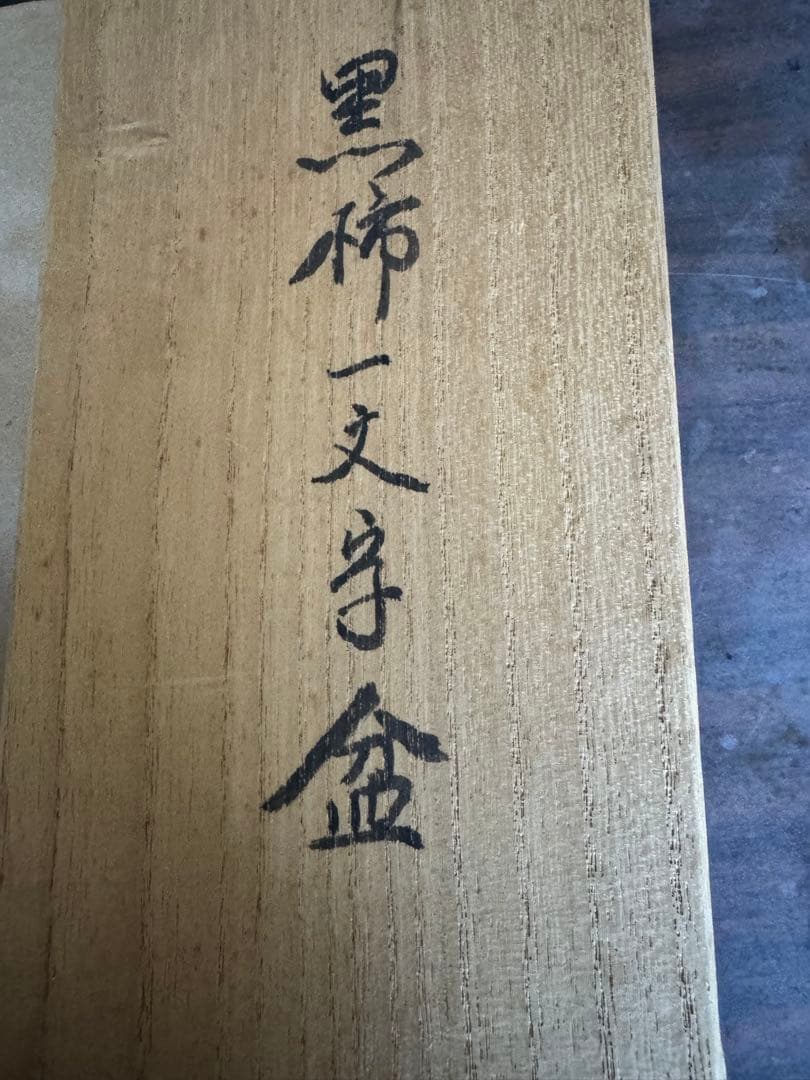 黒柿一文字盆